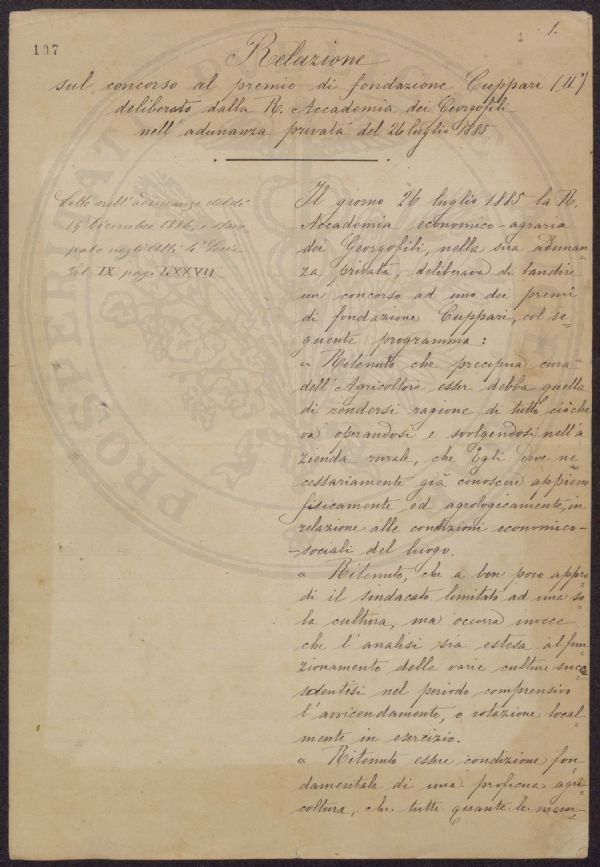 107
1.
Relazione
sul concorso al premio di fondazione Cuppari (II°)
deliberato dalla R. Accademia dei Georgofili
nell'adunanza privata del 26 luglio 1885
Letto nell'adunanza del dì
19 Dicembre 1886, e stam
pato negli Atti 4ª Serie
Vol. IX pag. LXXVII
Il giorno 26 luglio 1885 la R.
Accademia economico-agraria
dei Georgofili, nella sua adunan=
za privata, deliberava di bandire
un concorso ad uno dei premî
di fondazione Cuppari, col se=
guente programma:
« Ritenuto che precipua cura
dell'Agricoltore esser debba quella
di rendersi ragione di tutto ciò che
va operandosi e svolgendosi nell'a
zienda rurale, che Egli deve ne=
cessariamente già conoscere appieno
fisicamente ed agrologicamente, in
relazione alle condizioni economico-
-sociali del luogo.
« Ritenuto, che a ben poco appro=
di il sindacato limitato ad una so=
la cultura, ma occorra invece
che l'analisi sia estesa al fun=
zionamento delle varie culture succe
sdentesi nel periodo comprensivo
l'avvicendamento, o rotazione local=
mente in esercizio.
« Ritenuto essere condizione fon=
damentale di una proficua agri=
coltura, che tutte quante le
PROSPERITAT